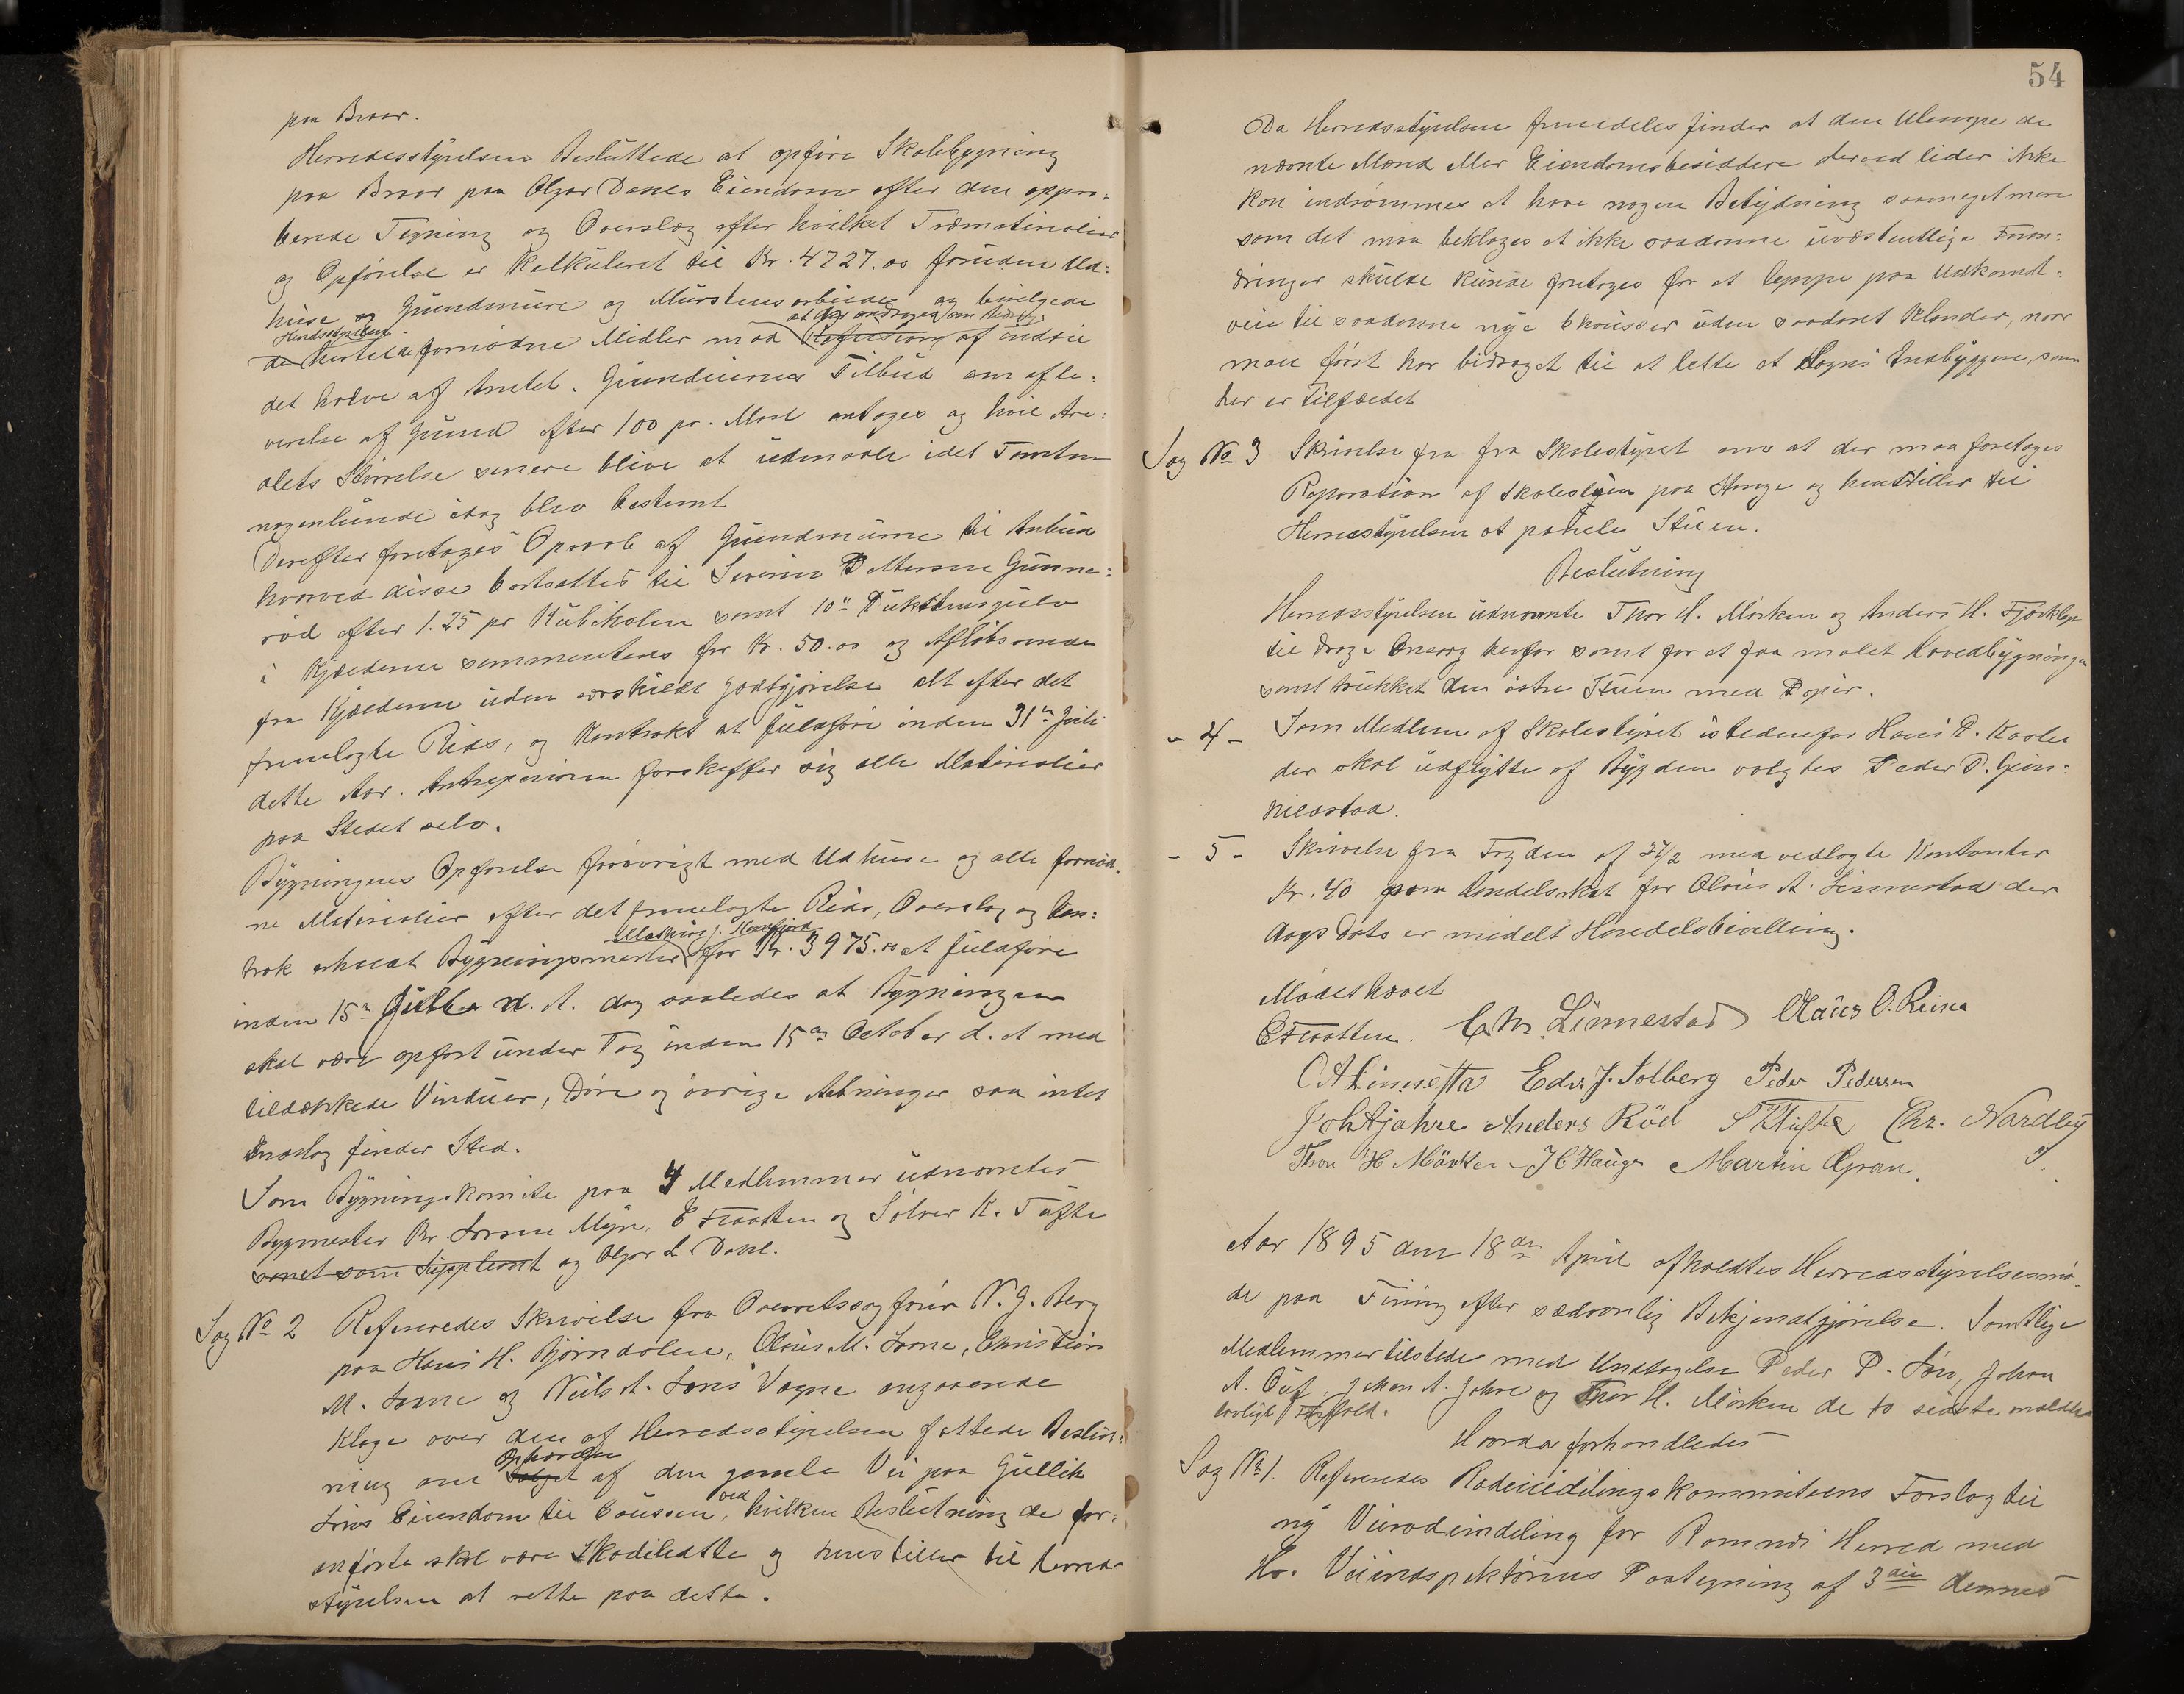 paa Braar.
Herredsstyrelsen besluttede at opføre Skolebygning
paa Braar paa Olgar Dales Eiendom efter den appro-
berede Tegning og Overslag efter hvilket Træmaterialier
og Opførelse er kalkuleret til Kr. 4727.00 foruden Ud-
huse og Grundmure og Murstensarbeider og bevilgede
Herredsstyrelsen at der andrages om Bidrag
de hertil fornødne Midler mod Refusion af indtil
det halve af Amtet. Grundeiernes Tilbud om afle-
verelse af Grund efter 100 pr. Maal antages og hvil Are-
alets Størrelse senere blive at udmaale idet Tomten
nogenlunde idag blev bestemt
Derefter foretages Opraab af Grundmurene til Anbud
hvorved disse bortsattes til Severin Pettersen Gunne-
rød efter 1.25 pr Kubikalen samt 10"
i Kjælderen sementeres for Kr. 50.00 og Afløbsrende
fra Kjælderen uden særskildt godtgjørelse alt efter det
fremlagte Rids, og Kontrakt at fuldføre inden 31te Juli
dette Aar. Entreprenøren forskaffer sig alle Materialier
paa Stedet selv.
Bygningens Opførelse forøvrigt med Udhuse og alle fornød-
ne Materialier efter det fremlagte Rids, Overslag og Kon-
Mathias J.
trak erholdt Bygningsmester for Kr. 3975.00 at fuldføre
inden 15de Juli n. A. dog saaledes at Bygningen
skal være opført under Tag inden 15de October d. A med
tildækkede Vinduer, Døre og øvrige Aabninger saa intet
Indslag finder Sted.
Som Bygningskomite paa 4 Medlemmer udnævntes
Bygmester Kr Larsen Myre, E Fraatten og Sølver K. Tufte
samt som Suppleant og Olgar L Dahl.
Sag No 2 Refereredes Skrivelse fra Overretssagfører N. J. Berg
paa Hans H. Bjørndalen, Olaus M. Sørne, Christian
M. Sørne og Niels A. Søris Vegne angaaende
Klage over den af Herredsstyrelsen fattede Beslut-
Ophævelse
ning om Salget af den gamle Vei paa Gullik
Søris Eiendom til Bøussen, ved hvilken Beslutning de for-
anførte skal være skadelidte og henstiller til Herreds-
styrelsen at rette paa dette.
54
Da Herredsstyrelsen fremdeles finder at den Ulempe de
nævnte Mænd eller Eiendomsbesiddere derved lider ikke
kan indrømmes at have nogen Betydning saameget mere
som det maa beklages at ikke saadanne uvæsentlige Foran-
dringer skulde kunde foretages for at lempe paa Udkomst-
veie til saadanne nye Chausser uden saadant Klander, naar
man først har bidraget til at lette et Lagns Indbyggere, som
her er Tilfældet
Sag No 3 Skrivelse fra fra Skolestyret om at der maa foretages
Reparation af Skolestuen paa Hauge og henstiller til
Herredsstyrelsen at panele Stuen.
Beslutning
Herredsstyrelsen udnævnte Thor H. Mørken og Anders H.
til drage Omsorg herfor samt for at faa malet Hovedbygningen
samt trukket den østre Stuen med Papir.
- 4 - Som Medlem af Skolestyret istedenfor Hans P. Kaalen
der skal udflytte af Bygden valgtes Peder P. Gun-
nildstad.
- 5 - Skrivelse fra Fogden af 27/2 med vedlagte Kontanter
Kr. 40 som Handelsskat for Olaus A. Linnestad der
dags Dato er midelt Handelsbevilling.
Mødet hævet
E Fraatten. C. M. Linnestad Olaus O. Reine
O A Linnestad Edv. J. Solberg Peder Pedersen
Joh A Jahre Anders Rød S K Tufte Chr. Nardby
Thor H Mørken H C Hauge Martin Gran.
Aar 1895 den 18de April afholdtes Herredsstyrelsesmø-
de paa Fining efter sædvanlig Bekjendtgjørelse. Samtlige
Medlemmer tilstede med Undtagelse Peder P. Søri, Johan
A. Ouf, Johan A. Jahre og Thor H. Mørken de to sidste meldte
lovligt Forfald.
Hvorda forhandledes
Sag No 1. Refereredes Rodeinddelingskommiteens Forslag til
ny Veirodeinddeling for Ramnæs Herred med
Hr. Veiinspektørens Paategning af 3die dennes